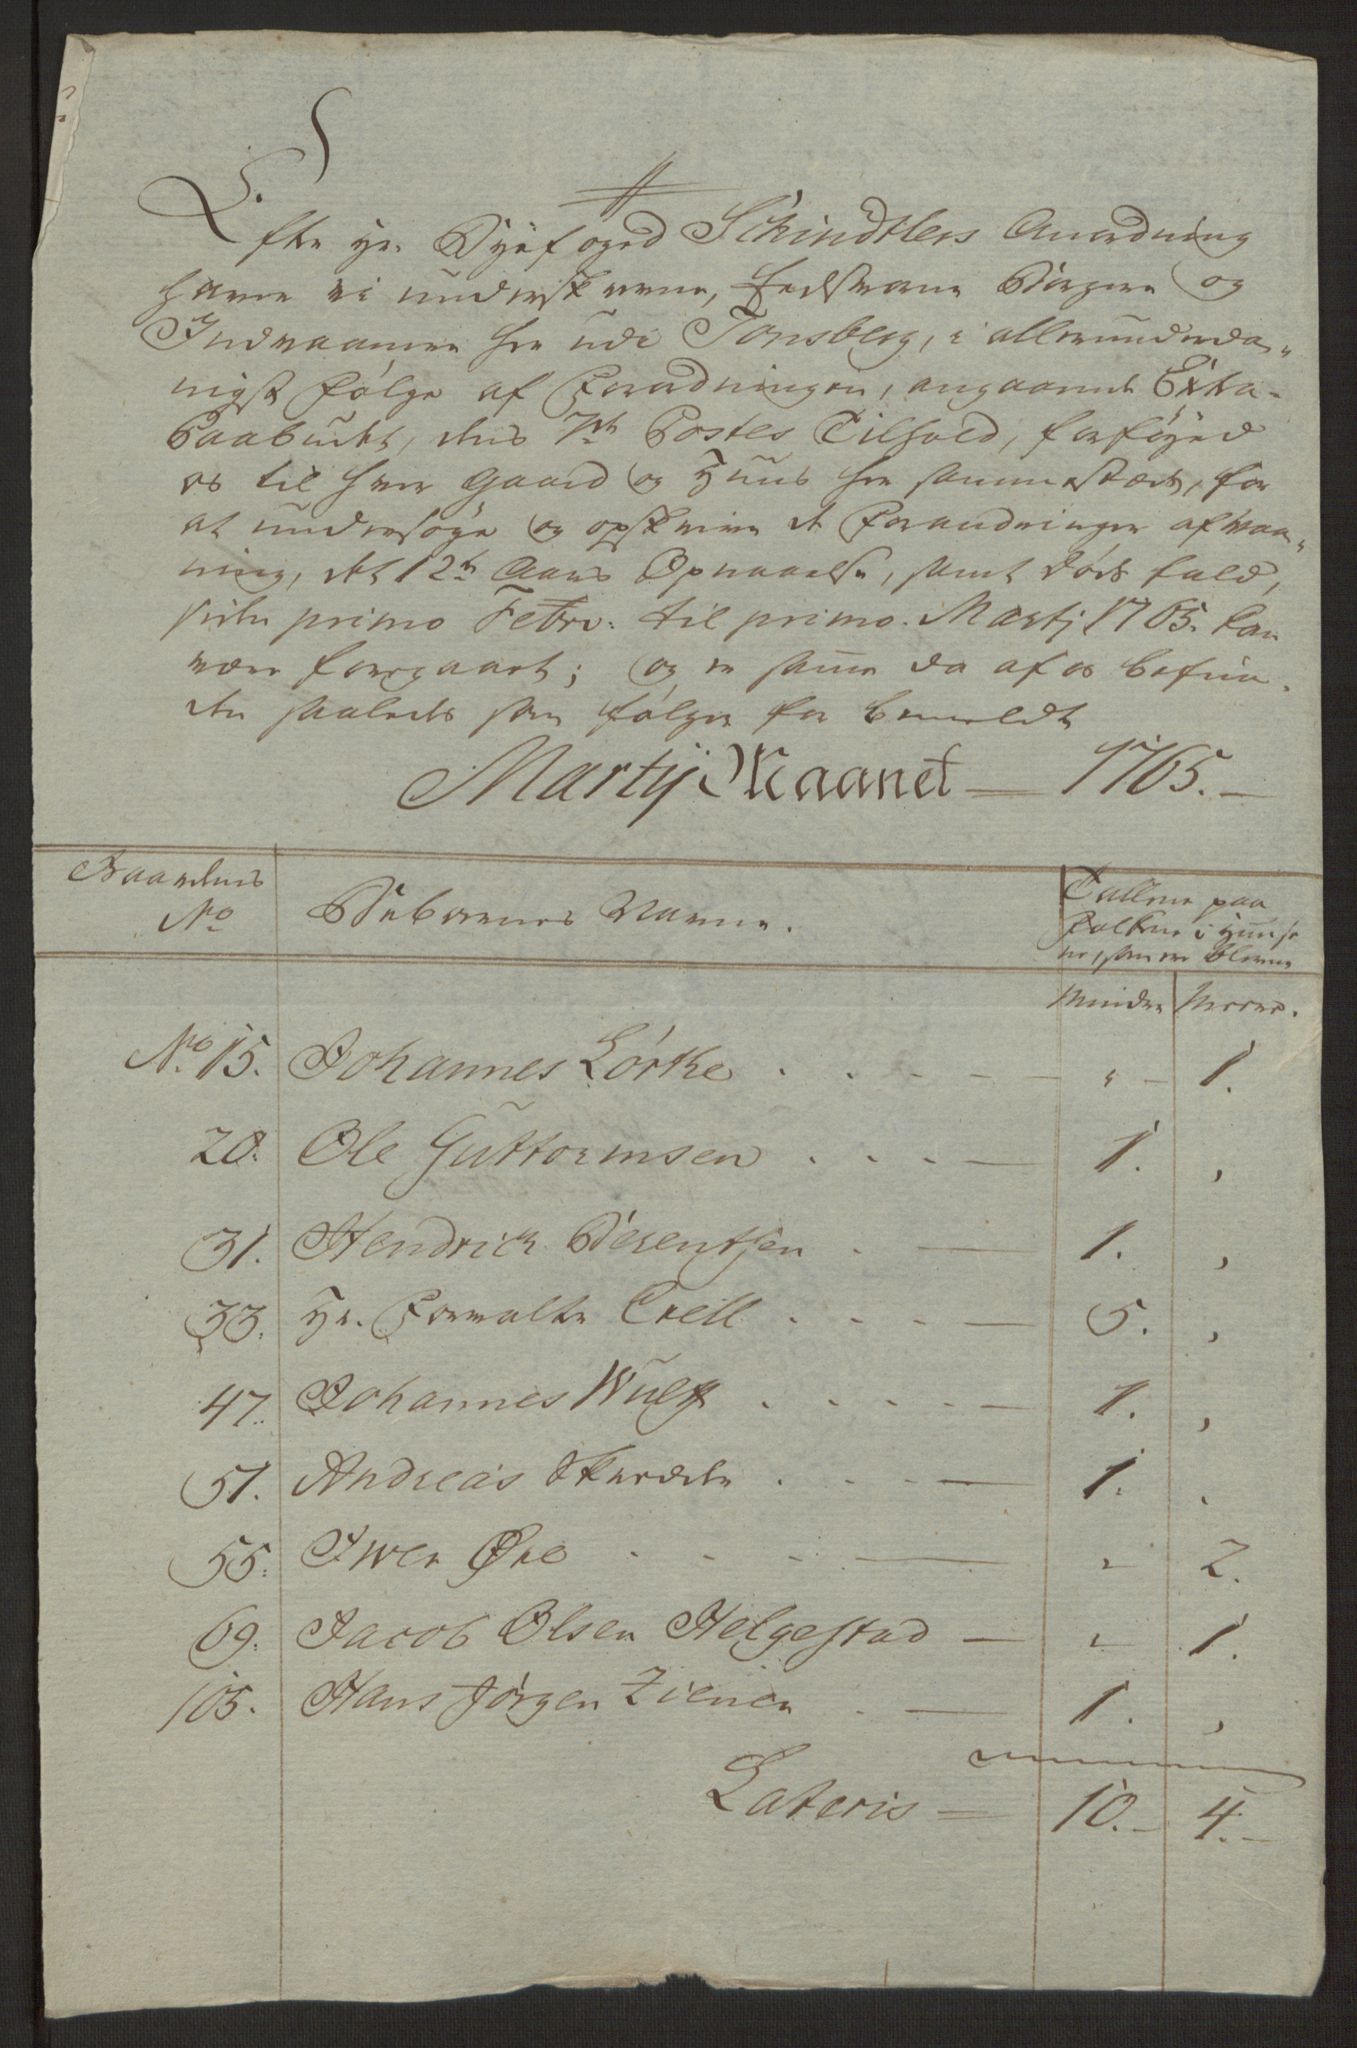 Efter Hr. Byefoged Schindtlers Anordning
haver vi underskrevne, Eedsvorne Borgere og
Indvaanere her udi Tonsberg, i allerunderda-
nigst følge af Forordningen, angaaende Extra-
Paabudet, dens 7de Postes Tilhold, forføyed
os til hver Gaard og Huus her sammestæds, for
at undersøge og opskrive de Forandringer af Vaa-
ning, det 12te Aars Opnaaelse, samt døds fald,
siden primo Febr: til primo Martj 1765. kan
være foregaaet; og er samme da af os befun-
den saaledes som følger for bemeldte
Martij Maanet — 1765. —
Gaardenes
No
Beboernes Navne.
Tallene paa
Folkene i Huuse
ne, som ere bleven
Mindre Meere.
No. 15. Johannes Lørke . . . . - - " - 1.
20. Ole Guttormsen . . . — 1. ,
31. Hendrich Berentsen . — 1. ,
33. Hr. Forvalter Crell . . . . — 5. ,
47. Johannes Wulf . . . . . — 1. ,
51. Andreas Skredder . . . — 1. .
55. Iver Øre . . . — " 2.
69. Jacob Olsen Helgestad — " 1.
105. Hans Jørgen Zienen . — 1. ,
Lateris — 10. - 4. -